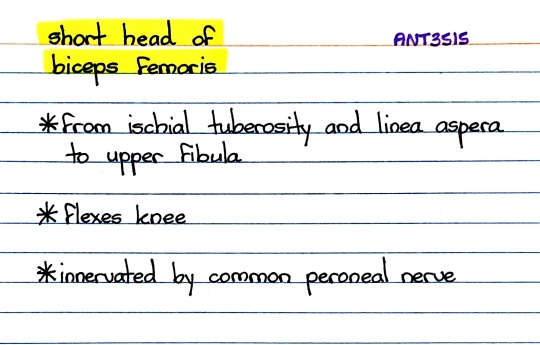 short head of
ANT3515
biceps femoris
*from ischial tuberosity and linea aspera
to upper fibula
*flexes knee
*innervated by common peroneal nerve